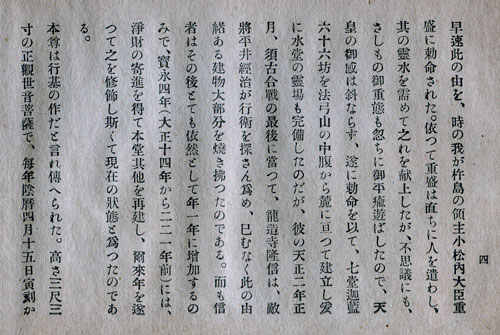 四
早速此の由を、時の我が杵島の領主小松內大臣重
盛に勅命された。依つて重盛は直ちに人を遣わし、
其の靈水を需めて之れを献上したが、不思議にも、
さしもの御重態も忽ちに御平癒遊ばしたので、天
皇の御感は斜ならず、遂に勅命を以て、七堂迦藍
六十六坊を法弓山の中腹から麓に亘つて建立し爰
に水堂の靈場も完備したのだが、彼の天正二年正
月、須古合戰の最後に當つて、龍造寺隆信は、敵
將平井經治が行衛を探さん爲め、已むなく此の由
緖ある建物大部分を燒き拂つたのである。而も信
者はその後とても依然として年一年に增加するの
みで、寳永四年（大正十四年から二二一年前）には、
淨財の寄進を得て本堂其他を再建し、爾來年を遂
つて之を修飾し斯くて現在の狀態と爲つたのであ
る。
本尊は行基の作だと言れ傳へられた。高さ三尺三
寸の正觀世音菩薩で、每年陰曆四月十五日寅刻か